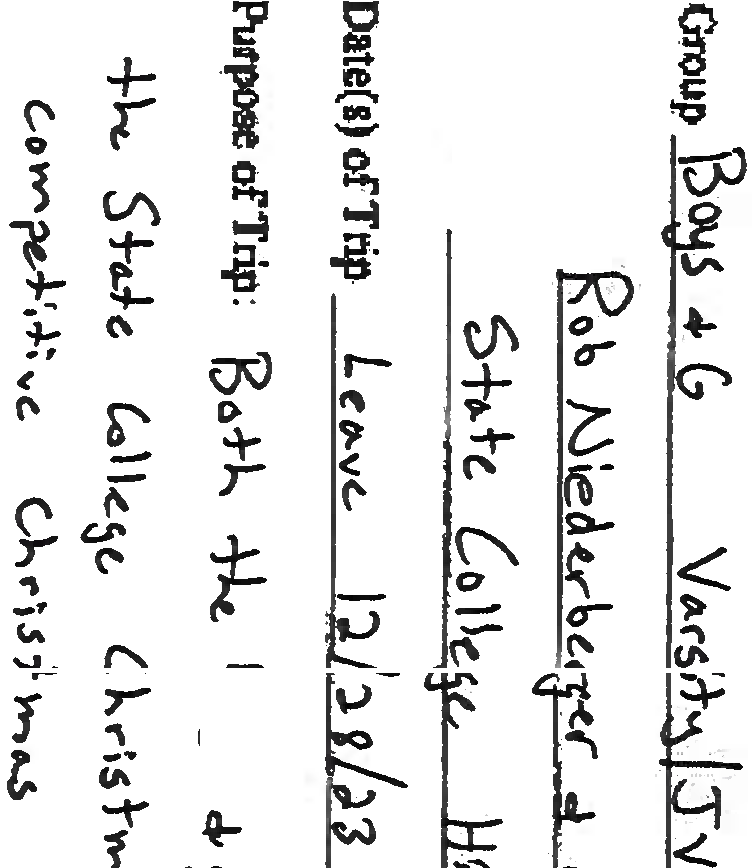 Group Boys & G Varsity/JV
Rob Niederberger &
State College
Date(s) of Trip Leave 12/28/23
Purpose of Trip: Both the &
the State College
competitive Christmas